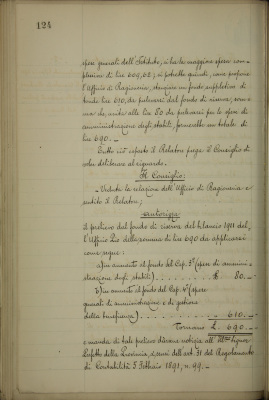 124
spese generali dell'Istituto, si ha la maggiore spesa com-
plessiva di lire 609,02; si potrebbe quindi, come propone
l'Ufficio di Ragioneria, stanziare un fondo suppletivo di
tonde lire 610, da prelevarsi dal fondo di riserva, som-
ma che, unita alle lire 80 da prelevarsi per le spese di
amministrazione degli stabili, formerebbe un totale di
lire 690. –
Tutto ciò esposto il Relatore prega il Consiglio di
voler deliberare al riguardo.
Il Consiglio:
– Veduta la relazione dell'Ufficio di Ragioneria e
sentito il Relatore;
autorizza
il prelievo dal fondo di riserva del bilancio 1911 del-
l'Ufficio Pio della somma di lire 690 da applicarsi
come segue:
a) in aumento al fondo del Cap. 3° (spese di ammini-
strazione degli stabili) . . . . . . . £. 80. –
b) in aumento al fondo del Cap. 4° (spese
generali di amministrazione e di gestione
della beneficenza) . . . . . . . . . . . „ 610. –
Tornano £. 690. –
e manda di tale prelievo darsene notizia all'Ill.mo Signor
Prefetto della Provincia, a sensi dell'art. 31 del Regolamento
di Contabilità 5 Febbraio 1891, n. 99. –